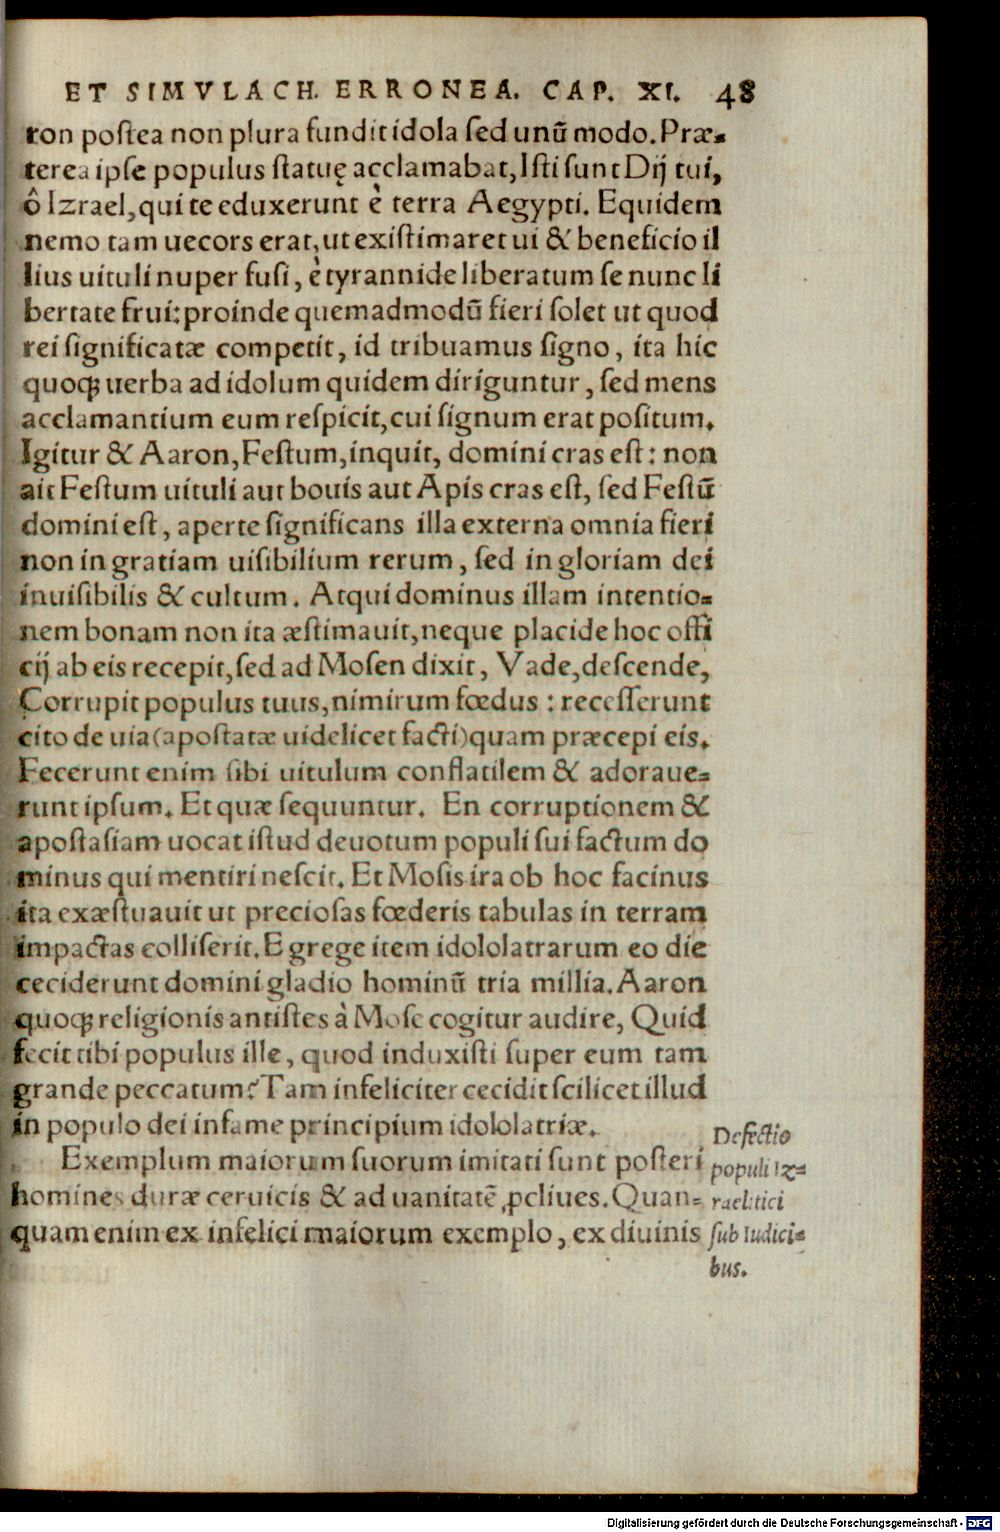 ET SIMVLACH. ERRONEA. CAP. XI. 48
ron poſtea non plura fundit idola ſed unū modo. Præ-
terea ipſe populus ſtatuę acclamabat, Iſti ſunt Dij tui,
ô Izrael, qui te eduxerunt è terra Aegypti. Equidem
nemo tam uecors erat, ut exiſtimaret ui & beneficio il
lius uituli nuper fuſi, è tyrannide liberatum ſe nunc li
bertate frui: proinde quemadmodū fieri ſolet ut quod
rei ſignificatæ competit, id tribuamus ſigno, ita hic
quoqꝫ uerba ad idolum quidem diriguntur, ſed mens
acclamantium eum reſpicit, cui ſignum erat poſitum.
Igitur & Aaron, Feſtum, inquit, domini cras eſt: non
ait Feſtum uituli aut bouis aut Apis cras eſt, ſed Feſtū
domini eſt, aperte ſignificans illa externa omnia fieri
non in gratiam uiſibilium rerum, ſed in gloriam dei
inuiſibilis & cultum. Atqui dominus illam intentio-
nem bonam non ita æſtimauit, neque placide hoc offi
cij ab eis recepit, ſed ad Moſen dixit, Vade, deſcende,
Corrupit populus tuus, nimirum fœdus: receſſerunt
cito de uia (apoſtatæ uidelicet facti) quam præcepi eis.
Fecerunt enim ſibi uitulum conflatilem & adoraue-
runt ipſum. Et quæ ſequuntur. En corruptionem &
apoſtaſiam uocat iſtud deuotum populi ſui factum do
minus qui mentiri neſcit. Et Moſis ira ob hoc facinus
ita exæſtuauit ut precioſas fœderis tabulas in terram
impactas colliſerit. E grege item idololatrarum eo die
ceciderunt domini gladio hominū tria millia. Aaron
quoqꝫ religionis antiſtes à Moſe cogitur audire, Quid
fecit tibi populus ille, quod induxiſti ſuper eum tam
grande peccatum? Tam infeliciter cecidit ſcilicet illud
in populo dei infame principium idololatriæ.
Exemplum maiorum ſuorum imitati ſunt poſteri
homines duræ ceruicis & ad uanitatē ꝓcliues. Quan-
quam enim ex infelici maiorum exemplo, ex diuinis
Defectio
populi Iz-
raelitici
ſub Iudici-
bus.
Digitalisierung gefördert durch die Deutsche Forschungsgemeinschaft - DFG